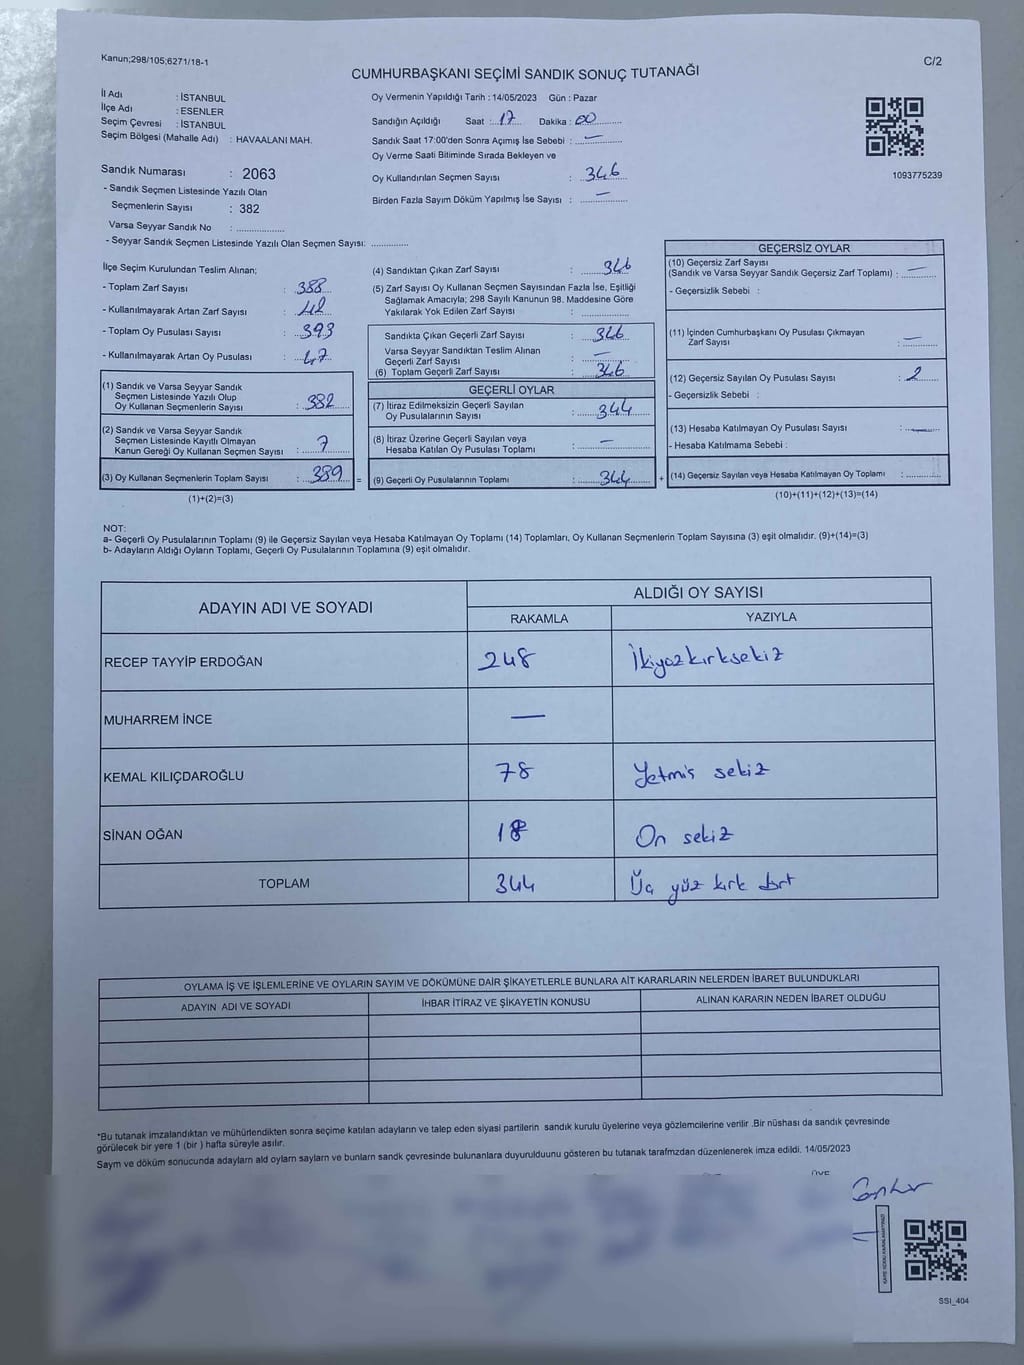 Kanun;298/105;6271/18-1
C/2
CUMHURBAŞKANI SEÇİMİ SANDIK SONUÇ TUTANAĞI
İl Adı : İSTANBUL
İlçe Adı : ESENLER
Seçim Çevresi : İSTANBUL
Seçim Bölgesi (Mahalle Adı) : HAVAALANI MAH.
Sandık Numarası : 2063
- Sandık Seçmen Listesinde Yazılı Olan
Seçmenlerin Sayısı : 382
Varsa Seyyar Sandık No : ..............
- Seyyar Sandık Seçmen Listesinde Yazılı Olan Seçmen Sayısı: ............
Oy Vermenin Yapıldığı Tarih : 14/05/2023 Gün : Pazar
Sandığın Açıldığı Saat : 17 Dakika : 00
Sandık Saat 17:00'den Sonra Açımış İse Sebebi : —
Oy Verme Saati Bitiminde Sırada Bekleyen ve
Oy Kullandırılan Seçmen Sayısı : 346
Birden Fazla Sayım Döküm Yapılmış İse Sayısı : —
1093775239
İlçe Seçim Kurulundan Teslim Alınan;
- Toplam Zarf Sayısı : 388
- Kullanılmayarak Artan Zarf Sayısı : 42
- Toplam Oy Pusulası Sayısı : 393
- Kullanılmayarak Artan Oy Pusulası : 47
(1) Sandık ve Varsa Seyyar Sandık
Seçmen Listesinde Yazılı Olup
Oy Kullanan Seçmenlerin Sayısı : 382
(2) Sandık ve Varsa Seyyar Sandık
Seçmen Listesinde Kayıtlı Olmayan
Kanun Gereği Oy Kullanan Seçmen Sayısı : 7
(3) Oy Kullanan Seçmenlerin Toplam Sayısı : 389 =
(1)+(2)=(3)
(4) Sandıktan Çıkan Zarf Sayısı : 346
(5) Zarf Sayısı Oy Kullanan Seçmen Sayısından Fazla İse, Eşitliği
Sağlamak Amacıyla; 298 Sayılı Kanunun 98. Maddesine Göre
Yakılarak Yok Edilen Zarf Sayısı : ..............
Sandıkta Çıkan Geçerli Zarf Sayısı : 346
Varsa Seyyar Sandıktan Teslim Alınan
Geçerli Zarf Sayısı : —
(6) Toplam Geçerli Zarf Sayısı : 346
GEÇERLİ OYLAR
(7) İtiraz Edilmeksizin Geçerli Sayılan
Oy Pusulalarının Sayısı : 344
(8) İtiraz Üzerine Geçerli Sayılan veya
Hesaba Katılan Oy Pusulası Toplamı : —
(9) Geçerli Oy Pusulalarının Toplamı : 344 +
GEÇERSİZ OYLAR
(10) Geçersiz Zarf Sayısı
(Sandık ve Varsa Seyyar Sandık Geçersiz Zarf Toplamı) : —
- Geçersizlik Sebebi :
(11) İçinden Cumhurbaşkanı Oy Pusulası Çıkmayan
Zarf Sayısı : —
(12) Geçersiz Sayılan Oy Pusulası Sayısı : 2
- Geçersizlik Sebebi :
(13) Hesaba Katılmayan Oy Pusulası Sayısı : —
- Hesaba Katılmama Sebebi :
(14) Geçersiz Sayılan veya Hesaba Katılmayan Oy Toplamı : ............
(10)+(11)+(12)+(13)=(14)
NOT:
a- Geçerli Oy Pusulalarının Toplamı (9) ile Geçersiz Sayılan veya Hesaba Katılmayan Oy Toplamı (14) Toplamları, Oy Kullanan Seçmenlerin Toplam Sayısına (3) eşit olmalıdır. (9)+(14)=(3)
b- Adayların Aldığı Oyların Toplamı, Geçerli Oy Pusulalarının Toplamına (9) eşit olmalıdır.
ADAYIN ADI VE SOYADI
ALDIĞI OY SAYISI
RAKAMLA YAZIYLA
RECEP TAYYİP ERDOĞAN 248 İkiyüzkırksekiz
MUHARREM İNCE —
KEMAL KILIÇDAROĞLU 78 Yetmiş sekiz
SİNAN OĞAN 18 On sekiz
TOPLAM 344 Üç yüz kırk dört
OYLAMA İŞ VE İŞLEMLERİNE VE OYLARIN SAYIM VE DÖKÜMÜNE DAİR ŞİKAYETLERLE BUNLARA AİT KARARLARIN NELERDEN İBARET BULUNDUKLARI
ADAYIN ADI VE SOYADI İHBAR İTİRAZ VE ŞİKAYETİN KONUSU ALINAN KARARIN NEDEN İBARET OLDUĞU
*Bu tutanak imzalandıktan ve mühürlendikten sonra seçime katılan adayların ve talep eden siyasi partilerin sandık kurulu üyelerine veya gözlemcilerine verilir .Bir nüshası da sandık çevresinde
görülecek bir yere 1 (bir ) hafta süreyle asılır.
Saym ve döküm sonucunda adaylarn ald oylarn saylarn ve bunlarn sandk çevresinde bulunanlara duyurulduunu gösteren bu tutanak tarafmzdan düzenlenerek imza edildi. 14/05/2023
SSI_404